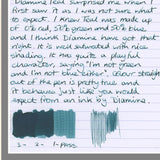 Diamine Teal surprised me when I
first saw it as I was not sure what
to expect. I knew Teal was made up
of red, 50% green and 50% blue
and I think Diamine have got that
right. It is well saturated with nice
shading, it has quite a playful
character, saying "I'm not green
and I'm not blue either". Colour straight
out of the pen is pretty true and
it behaves just like you would
expect from an ink by Diamine.
3- 2- 1-Pass